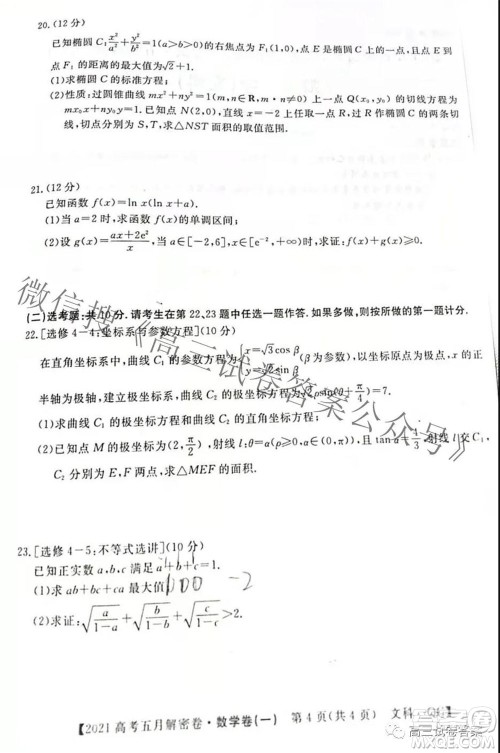 20.(12分)
已知椭圆C:x²/a²+y²/b²=1(a>b>0)的右焦点为F₁(1,0),点E是椭圆C上的一点,且点E到
点F₁的距离的最大值为√2+1.
(1)求椭圆C的标准方程;
(2)性质:过圆锥曲线mx²+ny²=1(m,n∈R,m·n≠0)上一点Q(x₀,y₀)的切线方程为
mx₀x+ny₀y=1.已知点N(2,0),直线x=-2上任取一点R,过R作椭圆C的两条切
线,切点分别为S,T,求△NST面积的取值范围.
21.(12分)
已知函数f(x)=ln x(ln x+a).
(1)当a=2时,求函数f(x)的单调区间;
(2)设g(x)=(ax+2e²)/x,当a∈[-2,6],x∈[e⁻²,+∞)时,求证:f(x)≤g(x).
(二)选考题:共10分.请考生在第22,23题中任选一题作答.如果多做,则按所做的第一题计分.
22.[选修4-4:坐标系与参数方程](10分)
在直角坐标系中,曲线C₁的参数方程为{x=√3cos β y=√3sin β(β为参数),以坐标原点为极点,x的正
半轴为极轴,建立极坐标系,曲线C₂的极坐标方程为
=7.
(1)求曲线C₁的极坐标方程和曲线C₂的直角坐标方程;
(2)已知点M的极坐标为(2,π/2),射线l:θ=α(ρ≥0,α∈(0,π)),且tan α=4/3,射线l交C₁,
C₂分别为E,F两点,求△MEF的面积.
23.[选修4-5:不等式选讲](10分)
已知正实数a,b,c满足a+b+c=1.
(1)求ab+bc+ca最大值
(2)求证:√(a/(1-a))+√(b/(1-b))+√(c/(1-c))>2.
【2021高考五月解密卷·数学卷(一) 第4页(共4页) 文科
微信搜《高三试卷答案公众号》
高三试卷答案